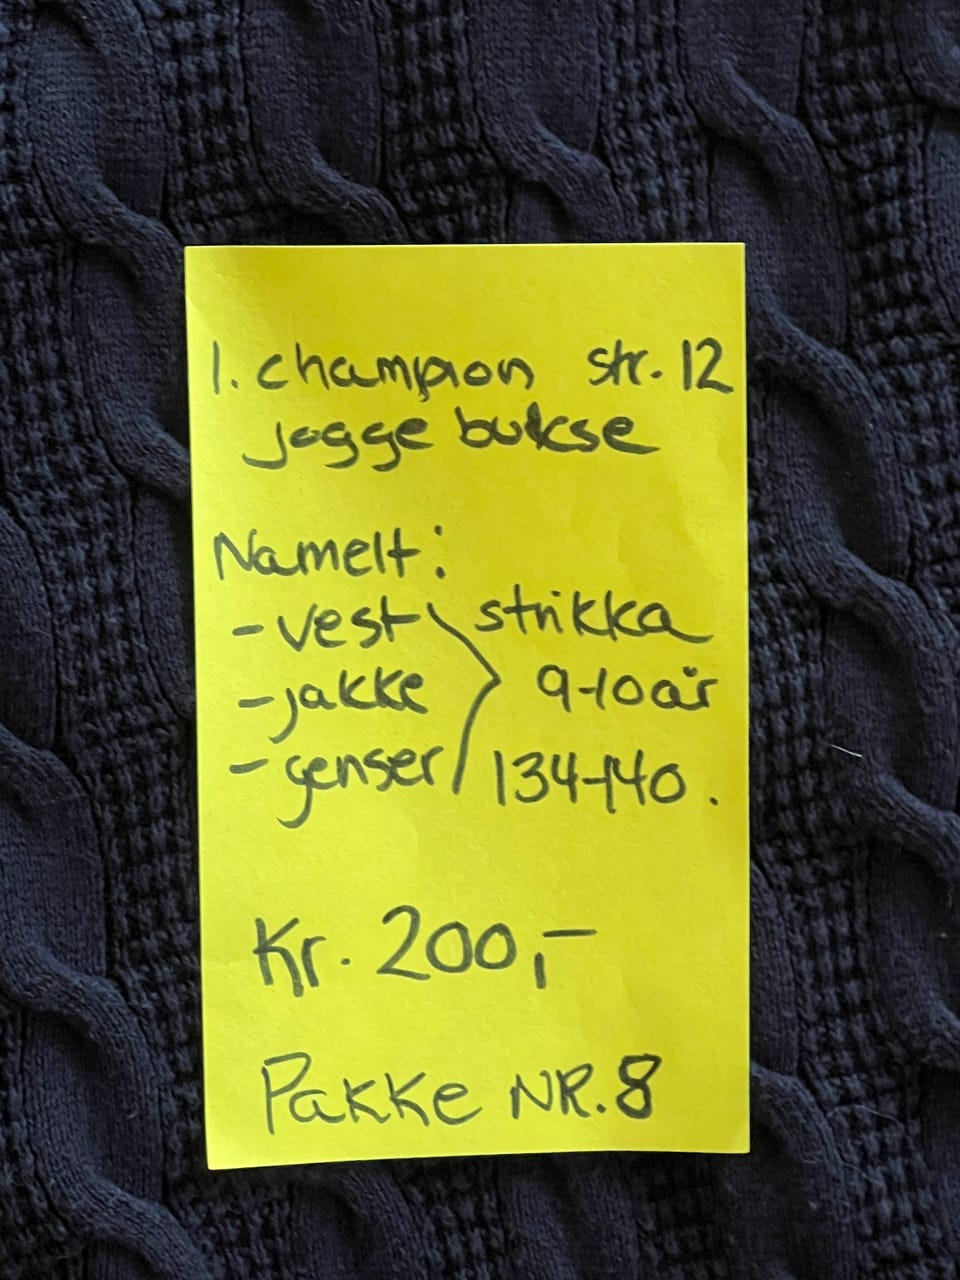 1. champion str. 12
jogge bukse
Namelt:
- vest strikka
- jakke 9-10 år
- genser 134-140.
Kr. 200,-
Pakke NR. 8